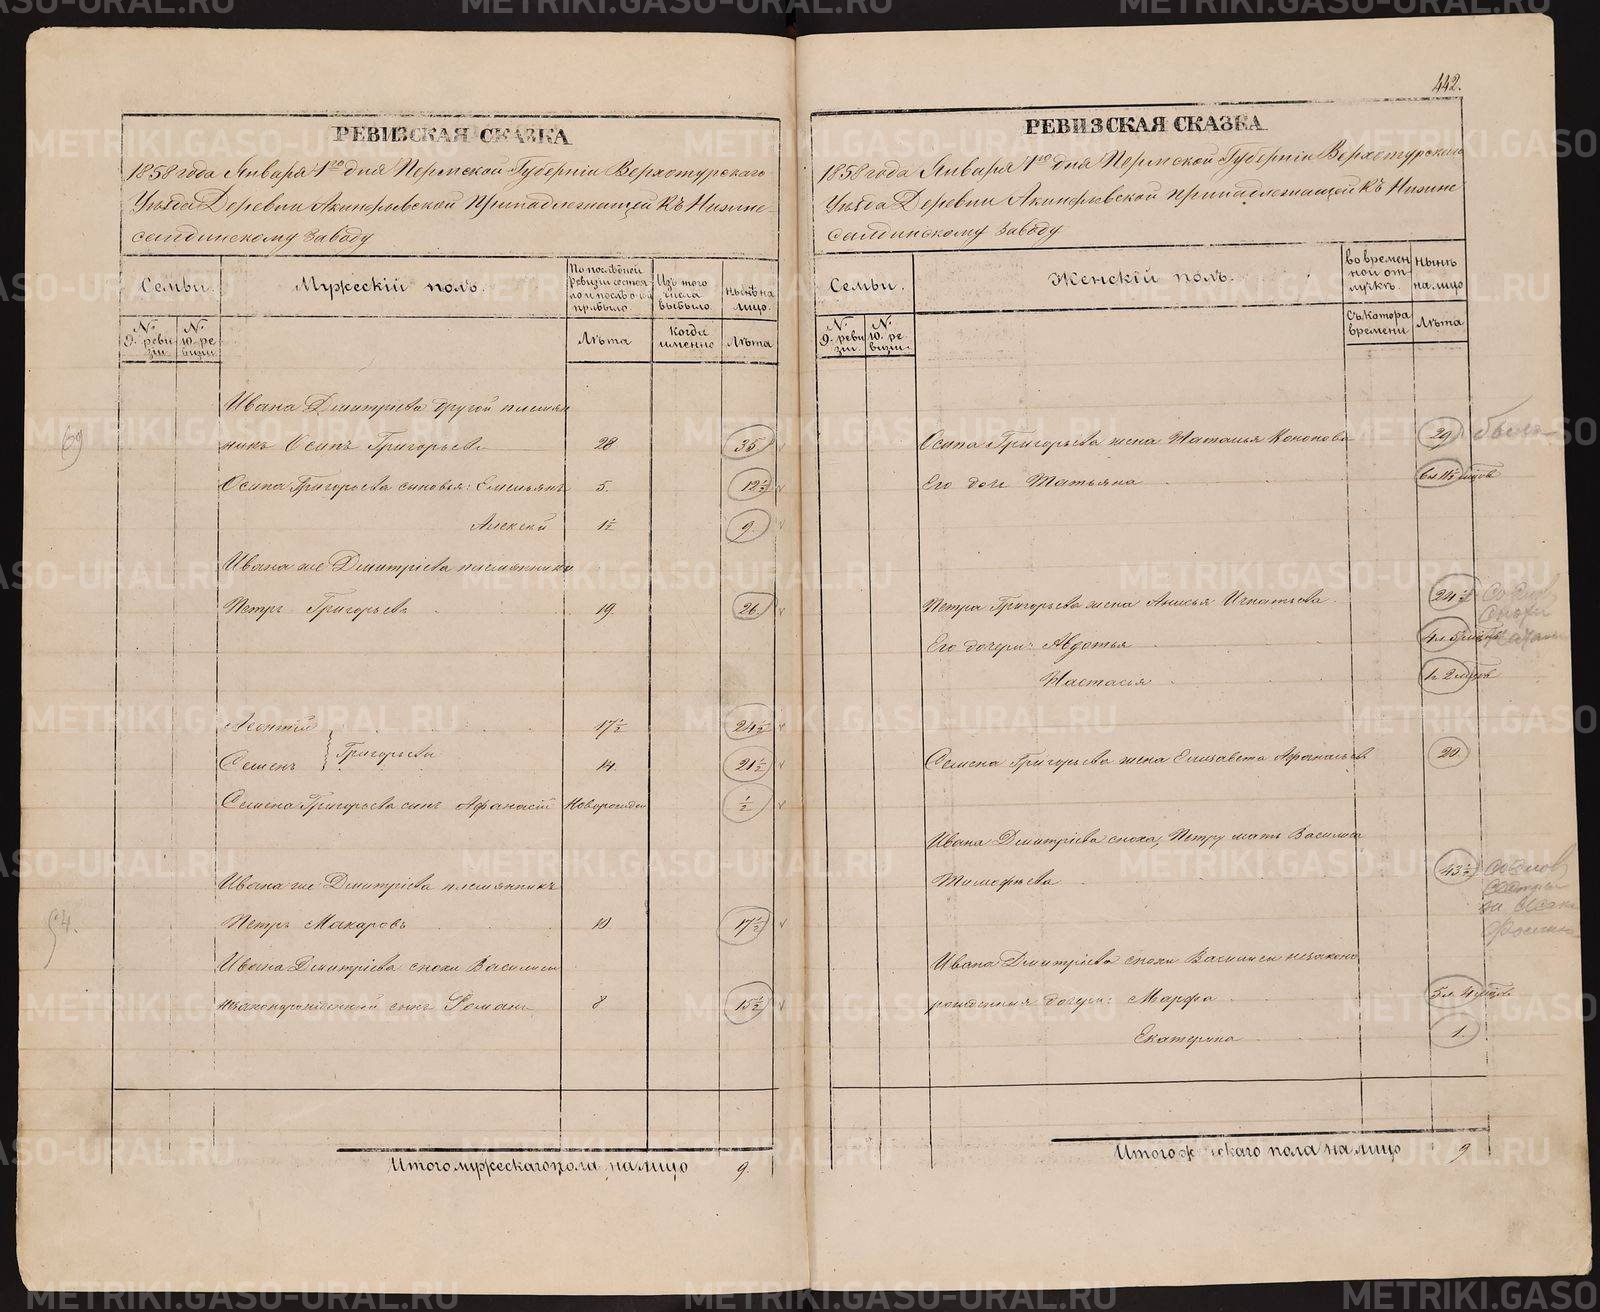 442.
РЕВИЗСКАЯ СКАЗКА
1858 года Января 1го дня Пермской Губернiи Верхотурскаго
Уѣзда Деревни Акинфiевской принадлежащей Къ Нижне-
салдинскому заводу
Семьи.
Мужескiй полъ.
По послѣдней ревизiи состоя
Изъ того числа выбыло.
нынѣ на лицо.
№. 9. ревизiи
№. 10. ревизiи
Лѣта
когда именно
Лѣта
69
Ивана Дмитрiева другой племян
никъ Осипъ Григорьевъ 28 35
Осипа Григорьева сыновья: Емельянъ 5. 12½
Алексѣй 1½ 9.
Ивана же Дмитрiева племянники
Петръ Григорьевъ 19. 26.
Леонтiй 17½ 24½
Григорьевы
Семенъ 14. 21½
Семена Григорьева сынъ Афанасiй Новорожден ½
Ивана же Дмитрiева племянникъ
Петръ Макаровъ 10 17½
Ивана Дмитрiева снохи Василисы
незаконорожденной сынъ Романъ 8 15½
Итого мужескаго пола на лицо 9.
РЕВИЗСКАЯ СКАЗКА
1858 года Января 1го дня Пермской Губернiи Верхотурскаго
Уѣзда Деревни Акинфiевской принадлежащей Къ Нижне
салдинскому заводу
Семьи.
Женскiй полъ.
во времен
ной от
лучкѣ.
нынѣ
на лицо
№. 9. ревизiи.
№. 10. ревизiи.
Съ котора
времени
Лѣта
Осипа Григорьева жена Наталья Конопова 29
Его дочь Татьяна 6 л 11½ мцовъ
Петра Григорьева жена Анисья Игнатьева 24½
Его дочери: Авдотья 4 л 5 мцовъ
Настасья 1 л 2 мцовъ
Семена Григорьева жена Елизавета Афанасьева 20.
Ивана Дмитрiева сноха, Петру мать Василиса
Тимофѣева 43½
Ивана Дмитрiева снохи Василисы незаконо
рожденныя дочери: Марфа 5 л. 4 мцов
Екатерина 1.
Итого женскаго пола на лицо 9
METRIKI.GASO-URAL.RU